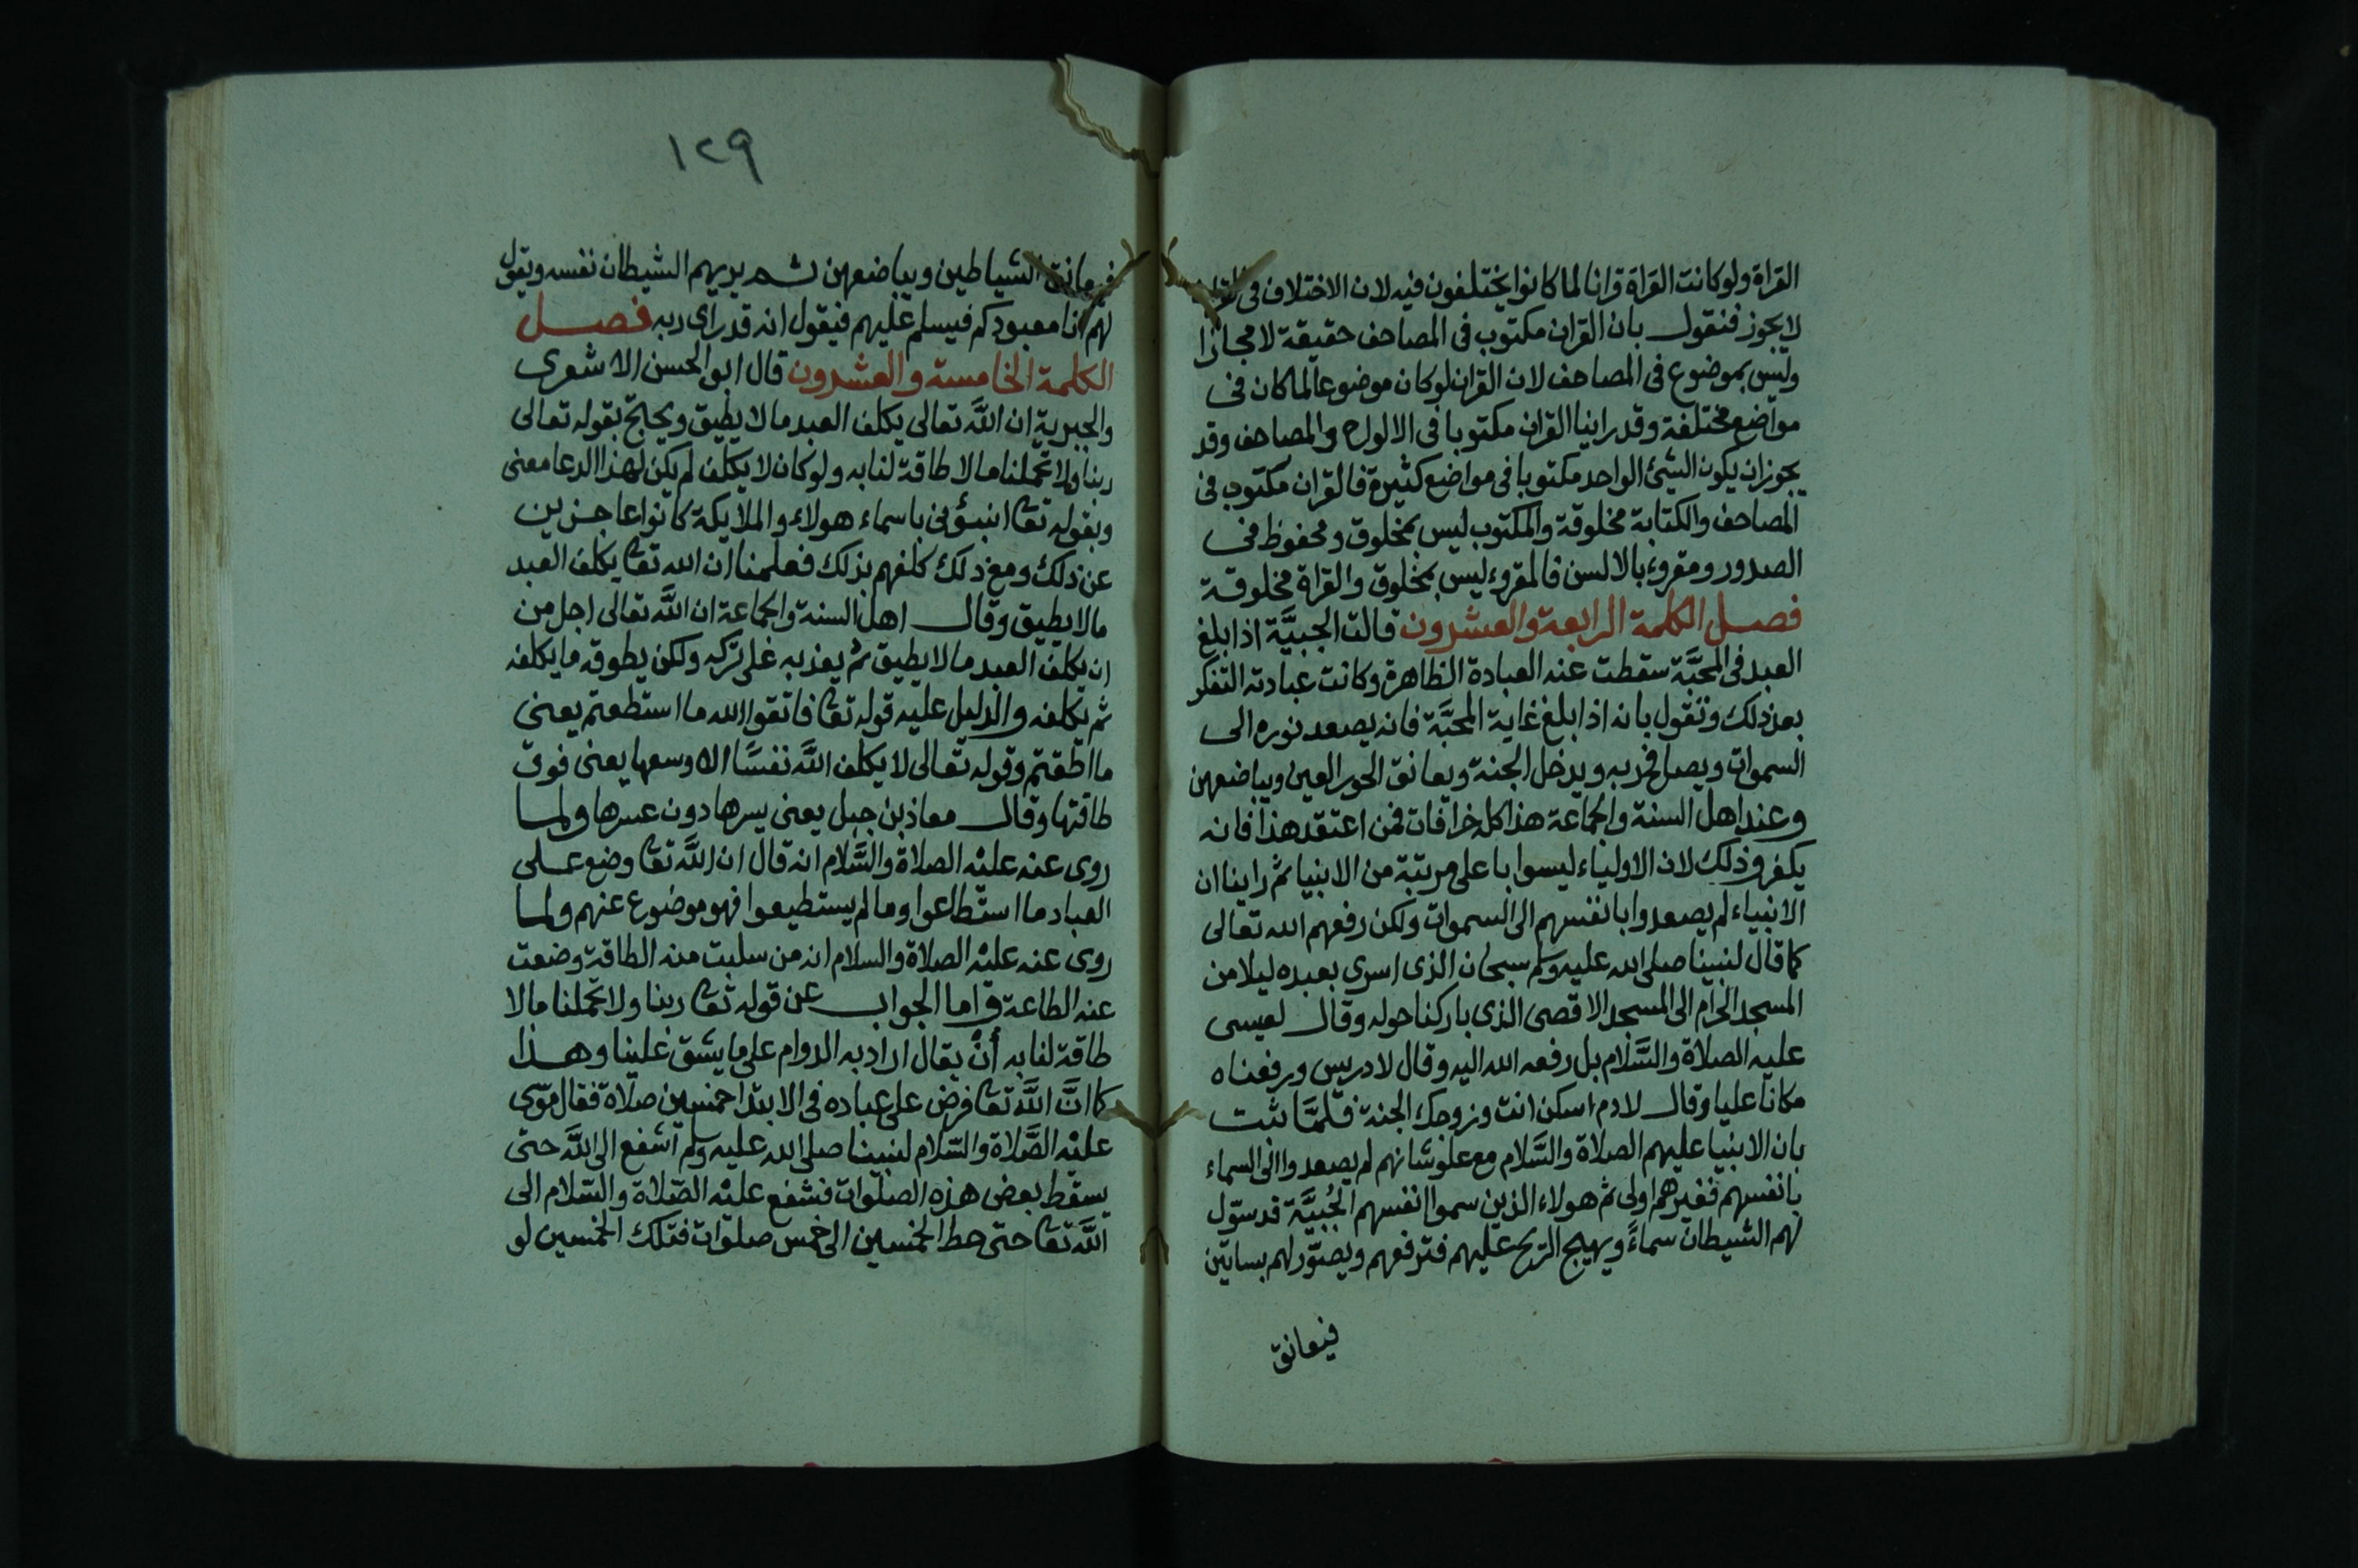 القراة ولو كانت القراة قرانا لما كانوا يختلفون فيه لان الاختلاف فى
لا يجوز فنقول بان القران مكتوب فى المصاحف حقيقة لا مجازا
وليس بموضوع فى المصاحف لان القران لو كان موضوعا لما كان فى
مواضع مختلفة وقد راينا القران مكتوبا فى الالواح والمصاحف وقد
يجوز ان يكون الشئ الواحد مكتوبا فى مواضع كثيرة فالقران مكتوب فى
المصاحف والكتابة مخلوقة والمكتوب ليس بمخلوق ومحفوظ فى
الصدور ومقروء بالالسن فالمقروء ليس بمخلوق والقراة مخلوقة
فصل الكلمة الرابعة والعشرون قالت الجبيَّة اذا بلغ
العبد فى المحبَّة سقطت عنه العبادة الظاهرة وكانت عبادته التفكر
بعد ذلك ونقول بانه اذا بلغ غاية المحبَّة فانه يصعد نوره الى
السموات ويصل فخربه ويدخل الجنة ويعانق الحور العين ويباضعهن
وعند اهل السنة والجماعة هذا كله خرافات فمن اعتقد هذا فانه
يكفر وذلك لان الاولياء ليسوا باعلى مرتبة من الانبيا ثم راينا ان
الانبياء لم يصعدوا بانفسهم الى السموات ولكن رفعهم الله تعالى
كما قال لنبينا صلى الله عليه وسلم سبحان الذى اسرى بعبده ليلا من
المسجد الحرام الى المسجد الاقصى الذى باركنا حوله وقال لعيسى
عليه الصلاة والسَّلام بل رفعه الله اليه وقال لادريس ورفعناه
مكانا عليا وقال لادم اسكن انت وزوجك الجنة فلمَّا ثبت
بان الانبيا عليهم الصلاة والسَّلام مع علو شانهم لم يصعدوا الى السماء
بانفسهم فغيرهم اولى ثم هولاء الذين سموا انفسهم الجُبيَّة قد سوّل
لهم الشيطان سماءً ويهيج الريح عليهم فترفعهم ويصوّر لهم بساتين
فيعانق
١٢٩
فيعانق الشياطين ويباضعهن ثم يريهم الشيطان نفسه ويقول
لهم انا معبودكم فيسلم عليهم فيقول انه قد راى ربه فصل
الكلمة الخامسة والعشرون قال ابو الحسن الاشعرى
والجبرية ان اللَّه تعالى يكلف العبد ما لا يطيق ويحتج بقوله تعالى
ربنا ولا تحملنا ما لا طاقة لنا به ولو كان لا يكلف لم يكن لهذا الدعا معنى
وبقوله تعا انبئونى باسماء هولاء والملايكة كانوا عاجزين
عن ذلك ومع ذلك كلفهم بذلك فعلمنا ان الله تعا يكلف العبد
ما لا يطيق وقال اهل السنة والجماعة ان اللَّه تعالى اجل من
ان يكلف العبد ما لا يطيق ثم يعذبه على تركه ولكن يطوقه ما يكلفه
ثم يكلفه والدليل عليه قوله تعا فاتقوا الله ما استطعتم يعنى
ما اطقتم وقوله تعالى لا يكلف اللَّه نفسًا الا وسعها يعنى فوق
طاقتها وقال معاذ بن جبل يعنى يسرها دون عسرها ولما
روى عنه عليه الصلاة والسَّلام انه قال ان اللَّه تعا وضع على
العباد ما استطاعوا وما لم يستطيعوا فهو موضوع عنهم ولما
روى عنه عليه الصلاة والسلام انه من سلبت منه الطاقة وضعت
عنه الطاعة واما الجواب عن قوله تعا ربنا ولا تحملنا ما لا
طاقة لنا به أنْ يقال اراد به الدوام على ما يشق علينا وهذا
كما انَّ اللَّه تعا فرض على عباده فى الابتدا خمسين صلاة فقال موسى
عليه الصَّلاة والسّلام لنبينا صلى الله عليه وسلم اشفع الى اللَّه حتى
يسقط بعض هذه الصلوات فشفع عليه الصّلاة والسّلام الى
اللَّه تعا حتى حط الخمسين الى خمس صلوات فتلك الخمسين لو